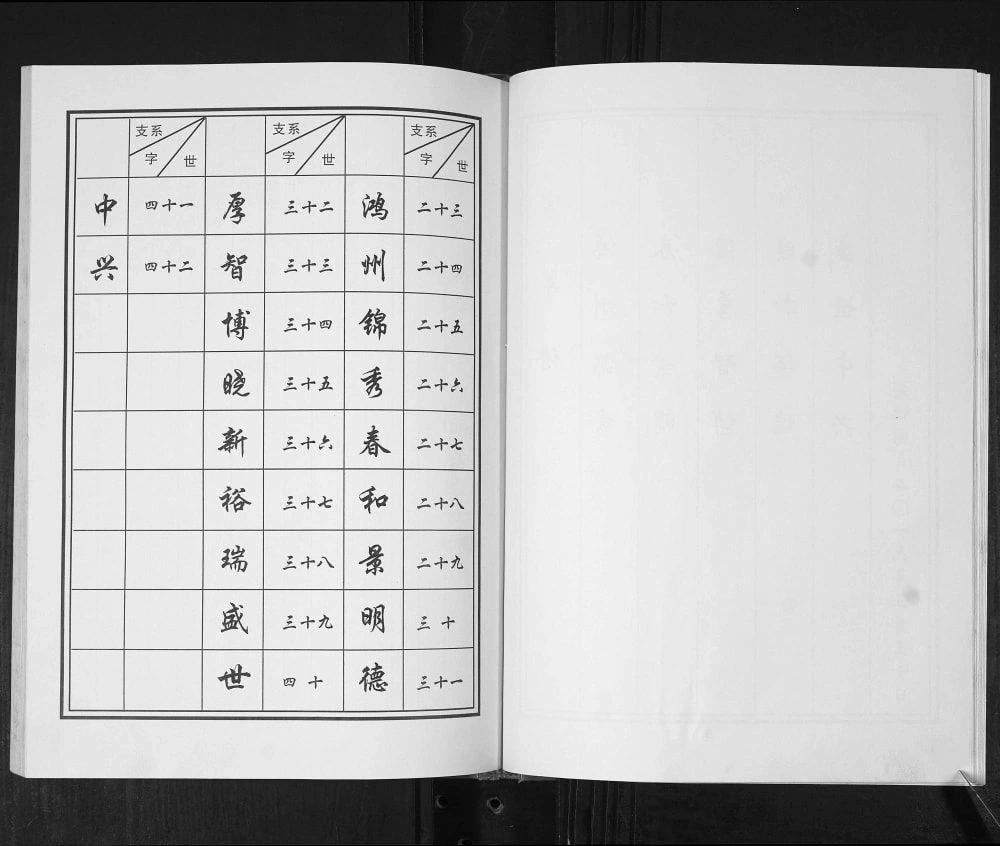 支系 字 世
二十三 鸿
二十四 州
二十五 锦
二十六 秀
二十七 春
二十八 和
二十九 景
三十 明
三十一 德
支系 字 世
三十二 厚
三十三 智
三十四 博
三十五 晓
三十六 新
三十七 裕
三十八 瑞
三十九 盛
四十 世
支系 字 世
四十一 中
四十二 兴